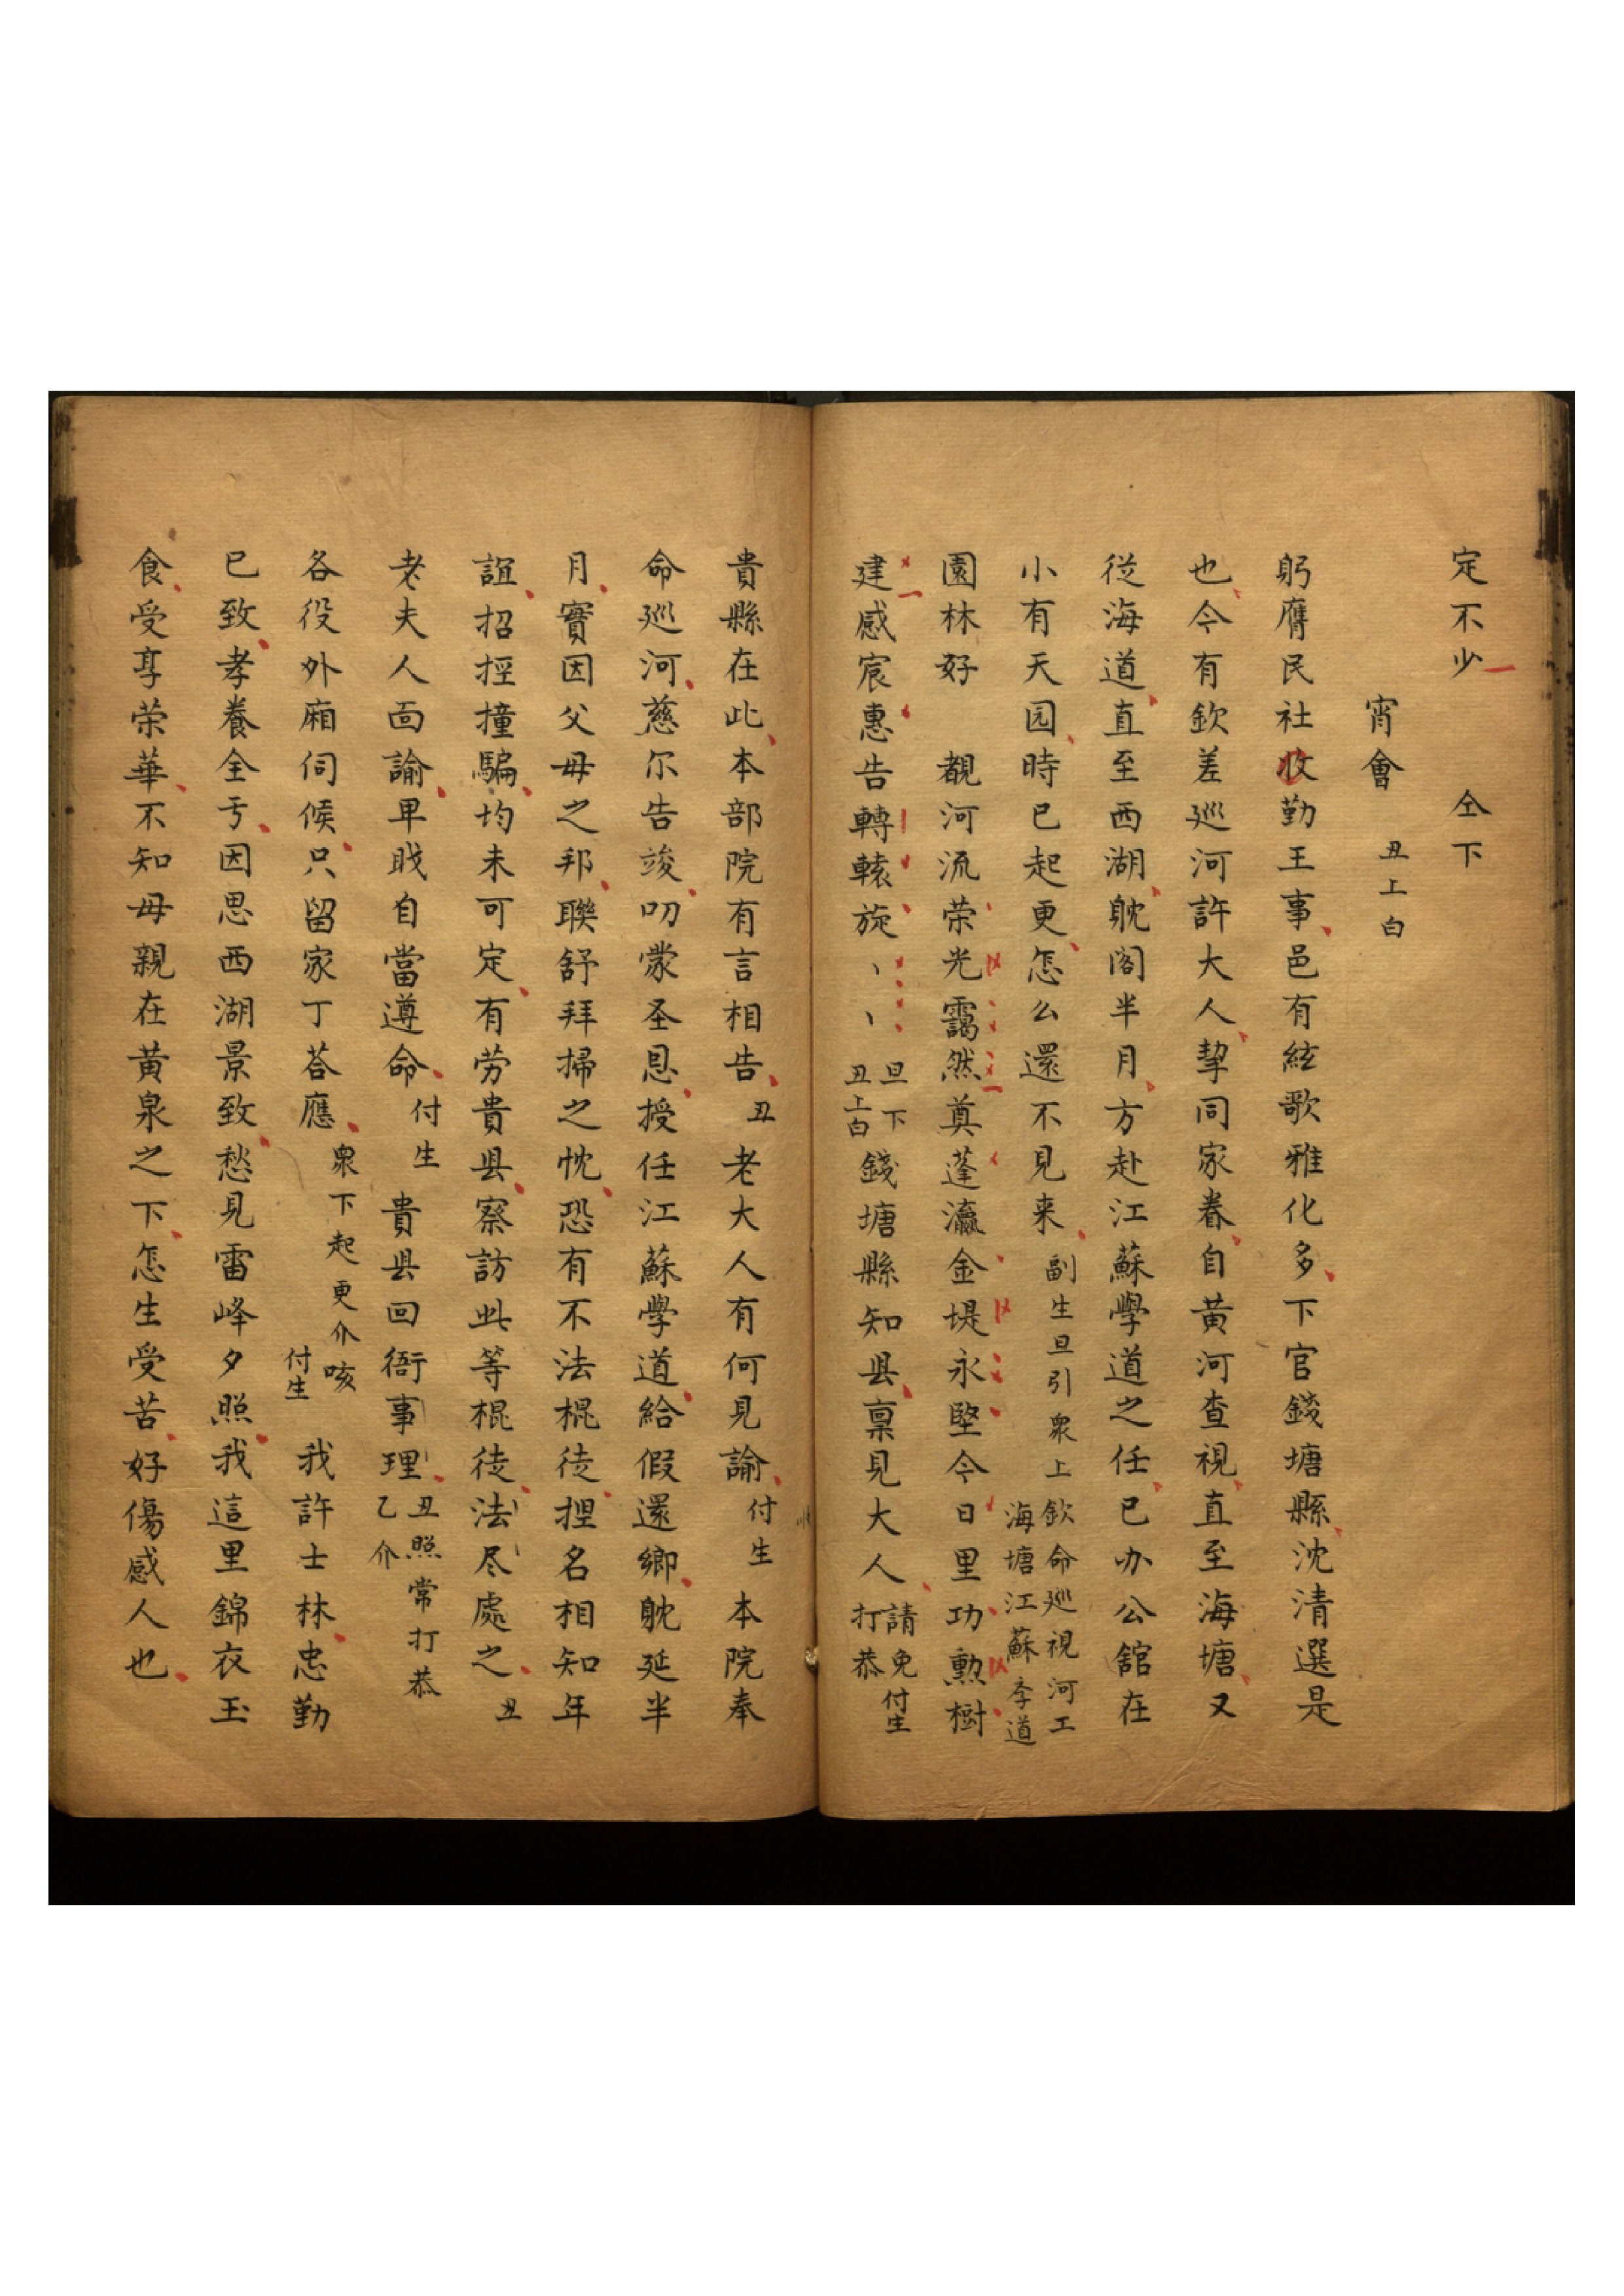 定不少　仝下
宵會　丑上白
躬膺民社收勤王事邑有絃歌雅化多下官錢塘縣沈清選是
也今有欽差巡河許大人挈同家眷自黃河查視直至海塘又
從海道直至西湖躭阁半月方赴江蘇學道之任已办公舘在
小有天园時已起更怎么還不見来　副生旦引衆上　欽命巡視河工
海塘江蘇孝道
園林好　覩河流荣光靄然奠蓬瀛金堤永堅今日里功勲樹
建感宸惠告轉轅旋丶丶　旦下
丑上白　錢塘縣知县禀見大人　請免　付生
打恭
貴縣在此本部院有言相告　丑　老大人有何見諭　付生　本院奉
命巡河慈尔告竣叨蒙圣恩授任江蘇學道給假還鄉躭延半
月實因父母之邦聨舒拜掃之忱恐有不法棍徒捏名相知年
誼招摇撞騙均未可定有劳貴县察訪此等棍徒法尽處之　丑
老夫人面諭卑戝自當遵命　付生　貴县回衙事理　丑照常打恭
乙介
各役外廂伺候只留家丁荅應　衆下起更介　咳
付生　我許士林忠勤
已致孝養全亏因思西湖景致愁見雷峰夕照我這里錦衣玉
食受享荣華不知母親在黃泉之下怎生受苦好傷感人也